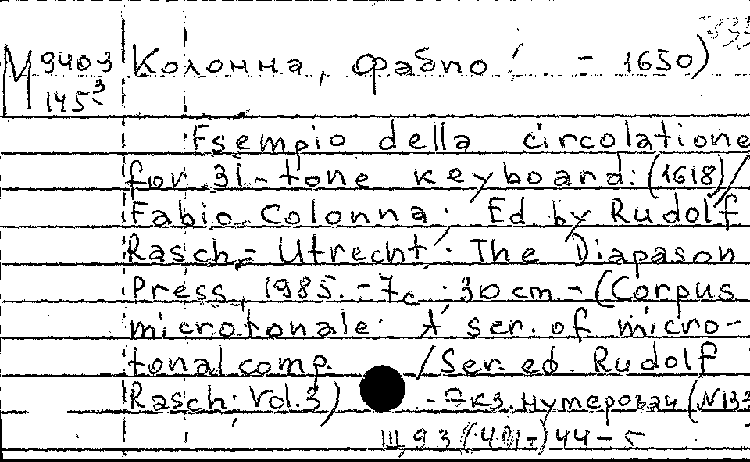 М 9403 / 145-3
Колонна, Фабио ( - 1650)
Esempio della circolatione
for 31-tone keyboard: (1618) /
Fabio Colonna; Ed by Rudolf
Rasch. - Utrecht: The Diapason
Press, 1985. - 7 с.; 30 cm. - (Corpus
microtonale: A ser. of micro-
tonal comp. / Ser. ed. Rudolf
Rasch; Vol. 3)
- Экз. нумерован (N133
Ш,93(4Ш-)44-5